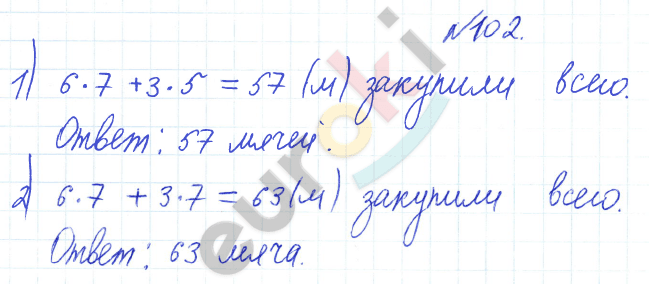 №102.
1) 6·7 + 3·5 = 57 (м) закупили всего.
Ответ: 57 мячей.
2) 6·7 + 3·7 = 63 (м) закупили всего.
Ответ: 63 мяча.
euroki